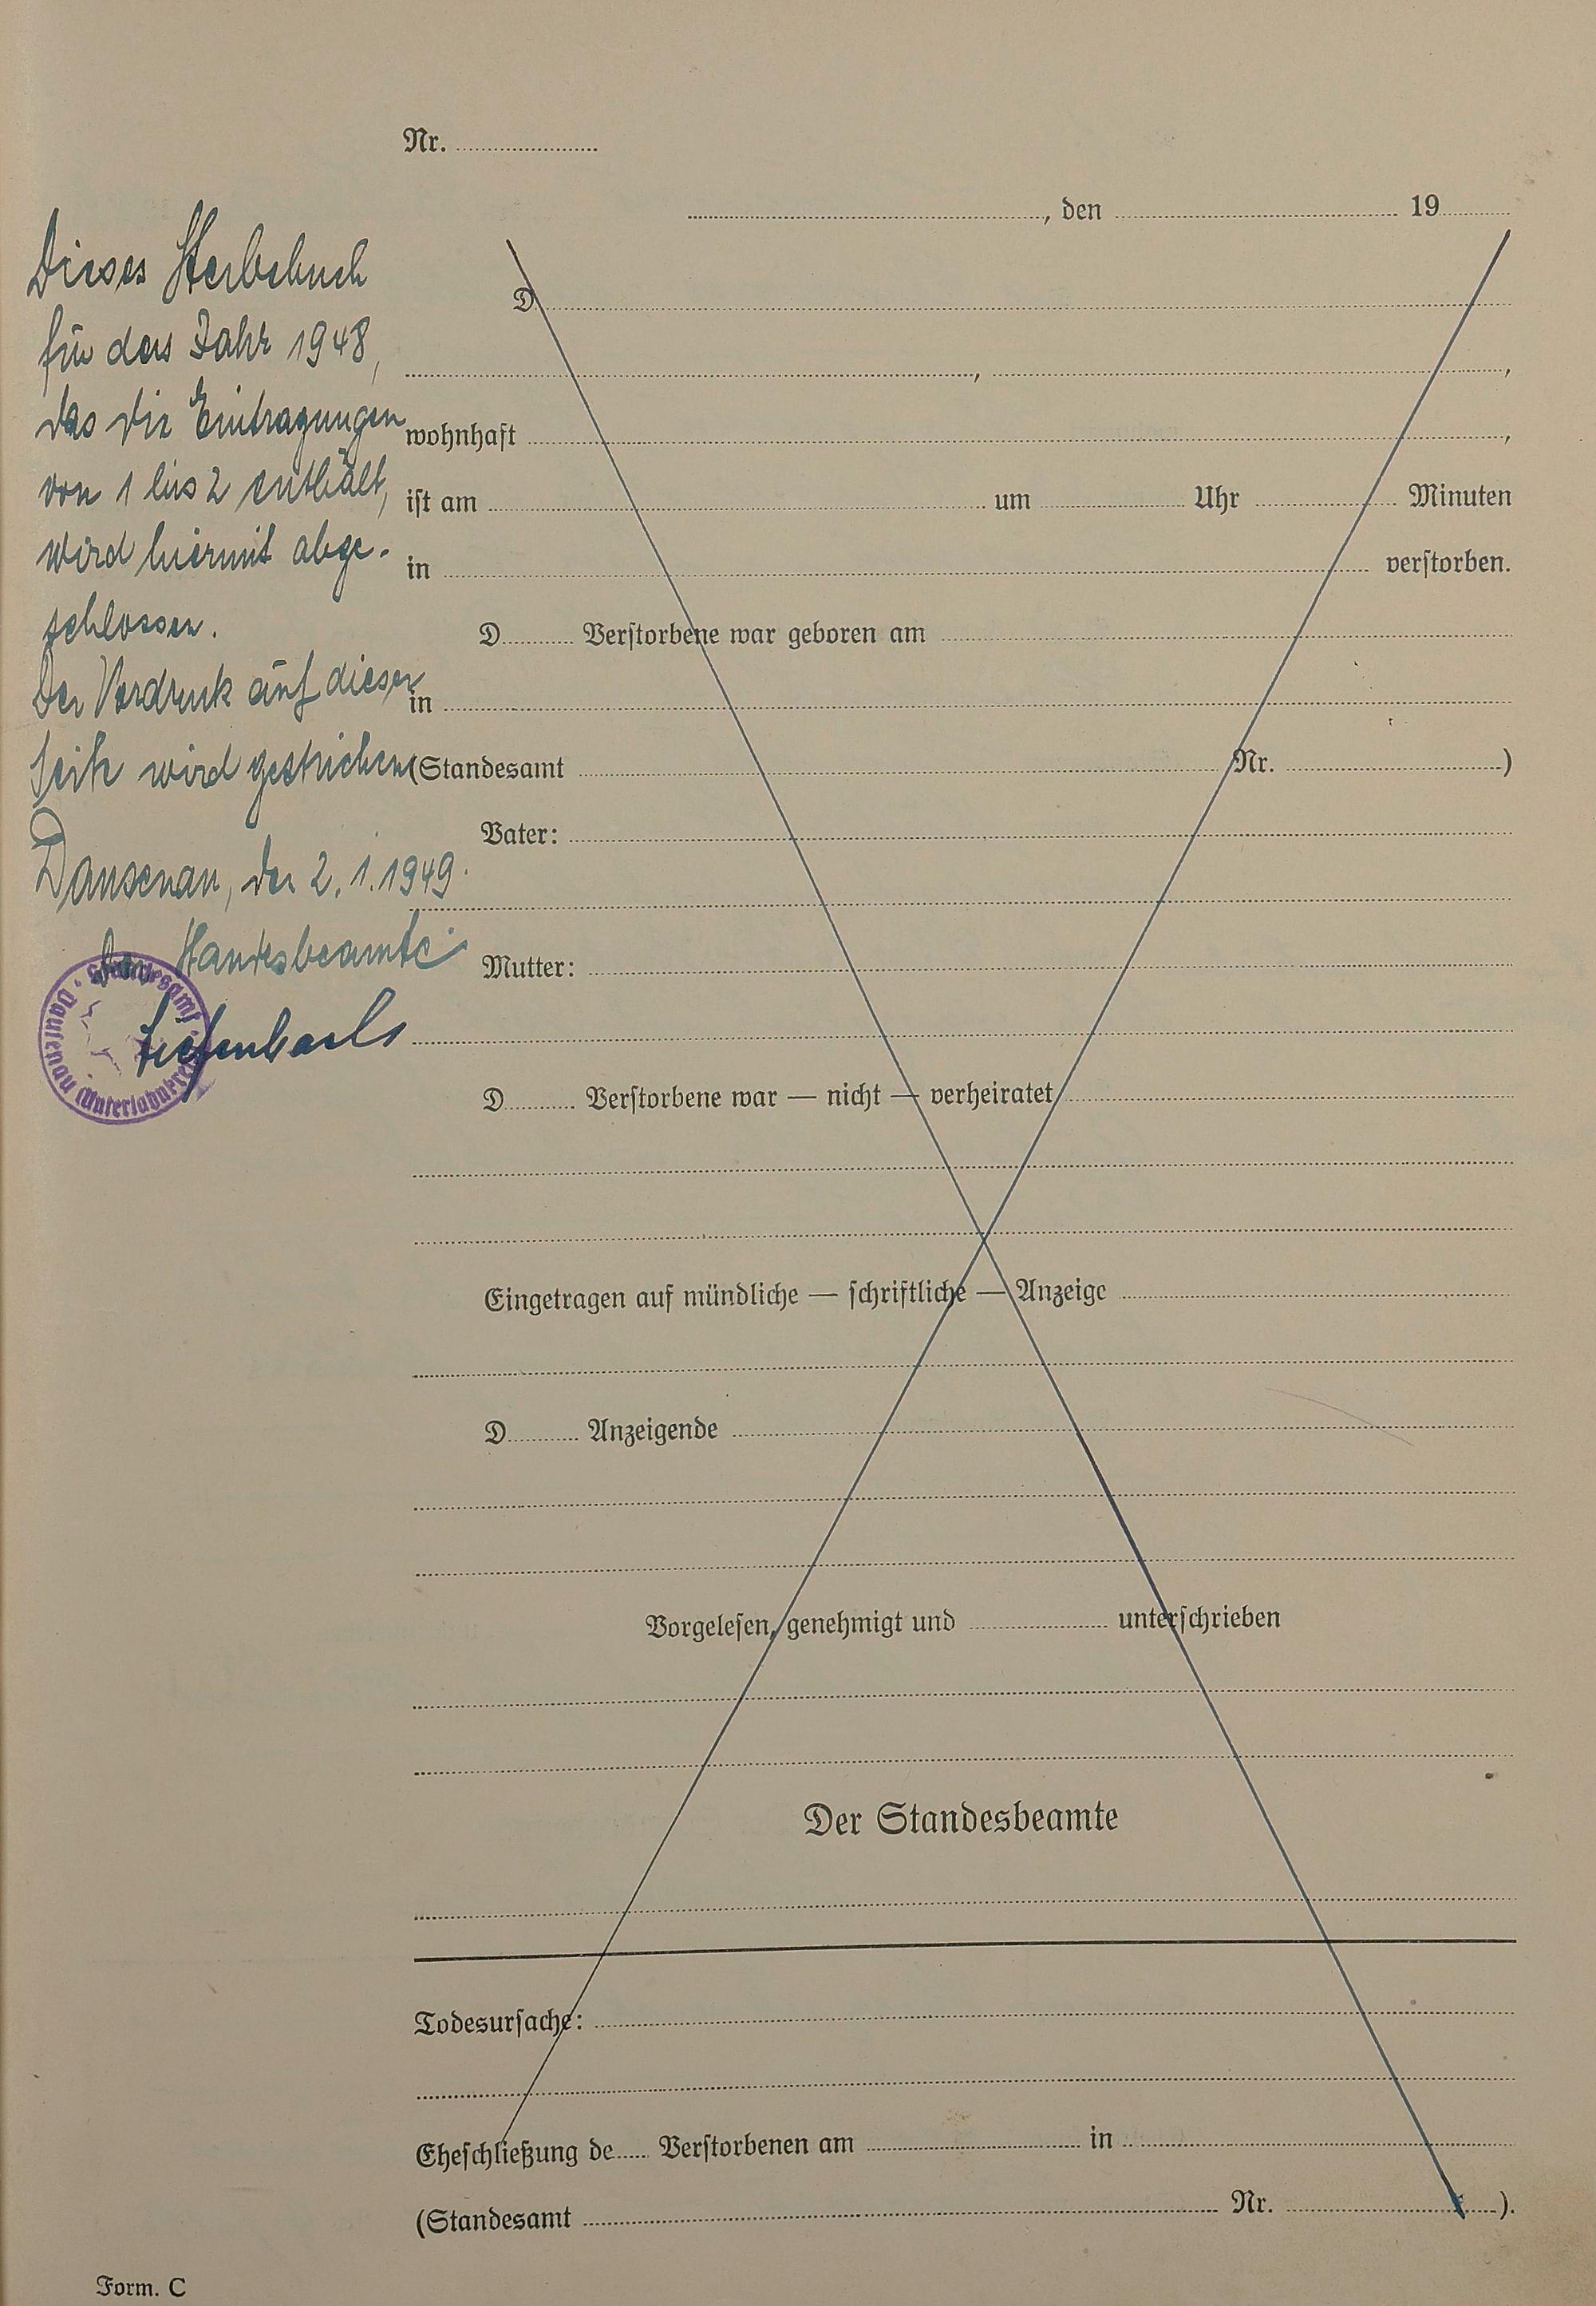 Nr.
, den 19
Dieses Sterbebuch
für das Jahr 1948,
das die Eintragungen
von 1 bis 2 enthält,
wird hiermit abge-
schlossen.
Der Vordruck auf dieser
Seite wird gestrichen
Dausenau, den 2.1.1949.
Der Standesbeamte:
Tiefenbach
Standesamt Dausenau (Unterlahnkreis)
D
, ,
wohnhaft ,
ist am um Uhr Minuten
in verstorben.
D Verstorbene war geboren am
in
(Standesamt Nr. )
Vater:
Mutter:
D Verstorbene war — nicht — verheiratet
Eingetragen auf mündliche — schriftliche — Anzeige
D Anzeigende
Vorgelesen, genehmigt und unterschrieben
Der Standesbeamte
Todesursache:
Eheschließung de Verstorbenen am in
(Standesamt Nr. ).
Form. C